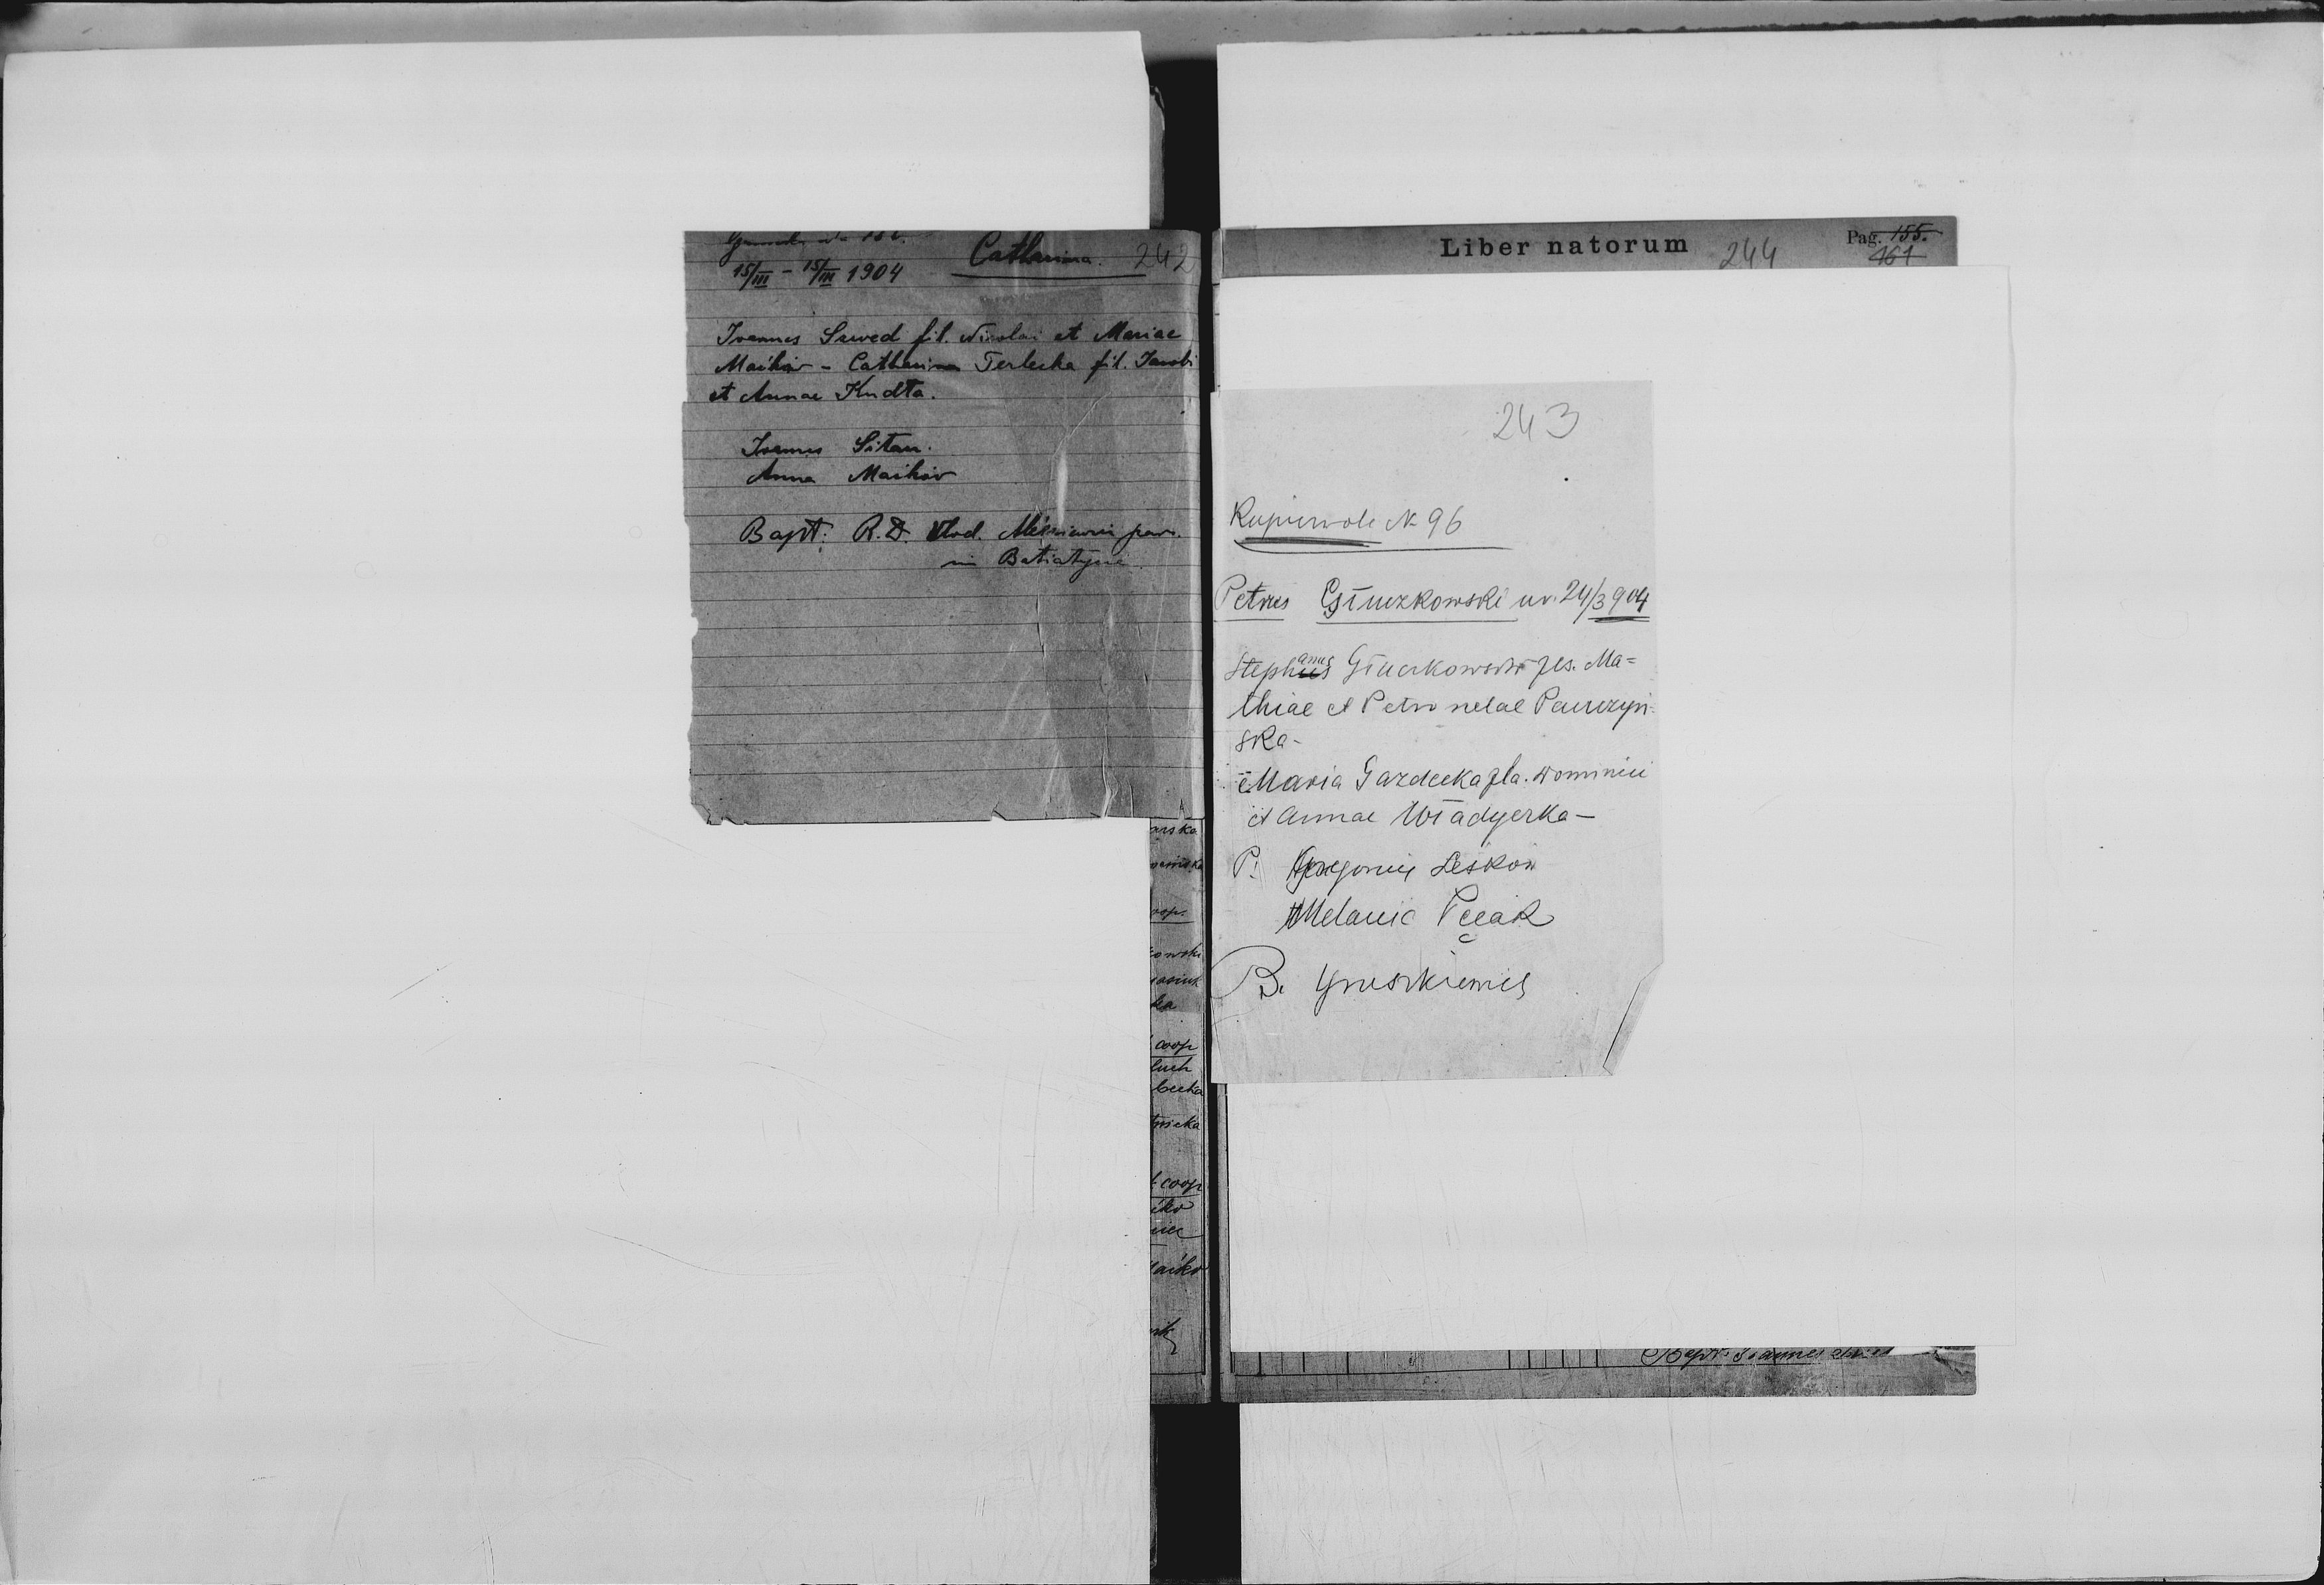 Catharina. 242
15/III - 15/III 1904
Ioannes Szwed fil. Nicolai et Mariae
Maików - Catharina Terlecka fil. Jacobi
et Annae Kudła.
Ioannes Sitan.
Anna Maików
Bapt: R.D. Vlod. par.
in Batiatycze.
Liber natorum 244 Pag. 155.
161
243
Kupierwole N 96
Petrus Głuszkowski ur. 24/3 904
Stephanus Głuszkowski fls. Ma=
thiae et Petronelae
ska-
Maria Gazdecka fla. Dominici
et Annae Władyczka -
P: Gregorius Leskow
Melania Pecak
B. Gruszkiewicz
arska
coop.
kowski
ka
coop
luch
becka
nicka
t. coop
iko
aiko
Bapt: Joannes